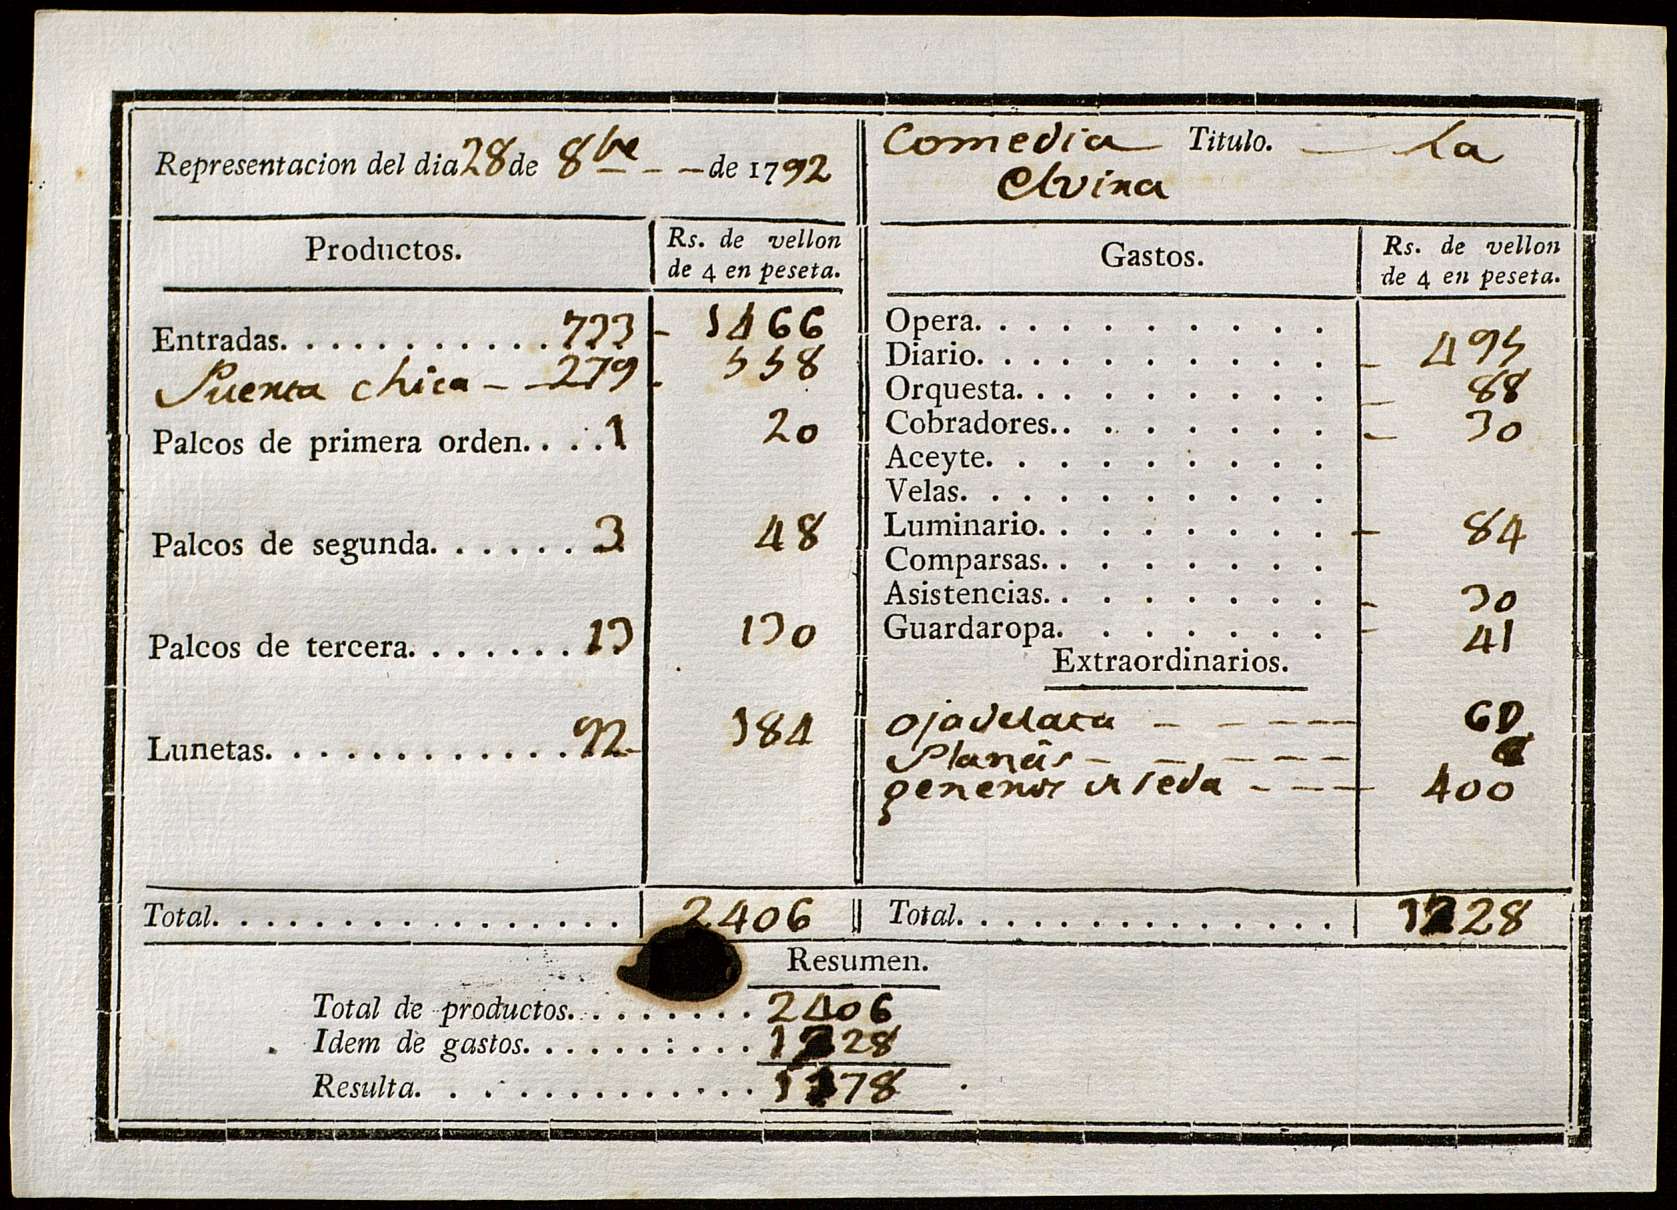 Representacion del dia 28 de 8bre - - de 1792
Comedia Titulo. — La
Elvira
Productos. Rs. de vellon
de 4 en peseta.
Entradas. . . . . . . . . . . 733 - 1466
Puerta chica - - 279 - 558
Palcos de primera orden. . . . 1 20
Palcos de segunda. . . . . . 3 48
Palcos de tercera. . . . . . . 13 130
Lunetas. . . . . . . . . . . . 92 184
Total. . . . . . . . . . . . . . . . 2406
Gastos. Rs. de vellon
de 4 en peseta.
Opera. . . . . . . . . .
Diario. . . . . . . . . . - 495
Orquesta. . . . . . . . . - 88
Cobradores. . . . . . . . - 30
Aceyte. . . . . . . . . .
Velas. . . . . . . . . . .
Luminario. . . . . . . . - 84
Comparsas. . . . . . . .
Asistencias. . . . . . . . - 30
Guardaropa. . . . . . . - 41
Extraordinarios.
oja de lata - - - - - 60
generos de seda - - - 400
Total. . . . . . . . . . . . . . 1228
Resumen.
Total de productos. . . . . . . . 2406
Idem de gastos. . . . . . . . . . 1228
Resulta. . . . . . . . . . . . . 1178